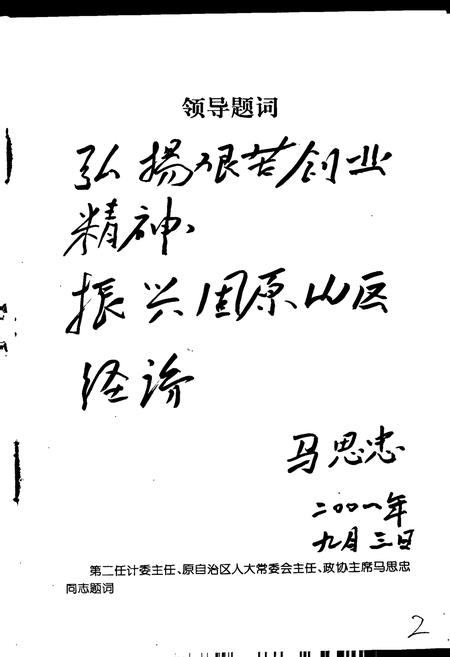 领导题词
弘扬艰苦创业
精神、
振兴固原山区
经济
马思忠
二〇〇一年
九月三日
第二任计委主任、原自治区人大常委会主任、政协主席马思忠
同志题词
2